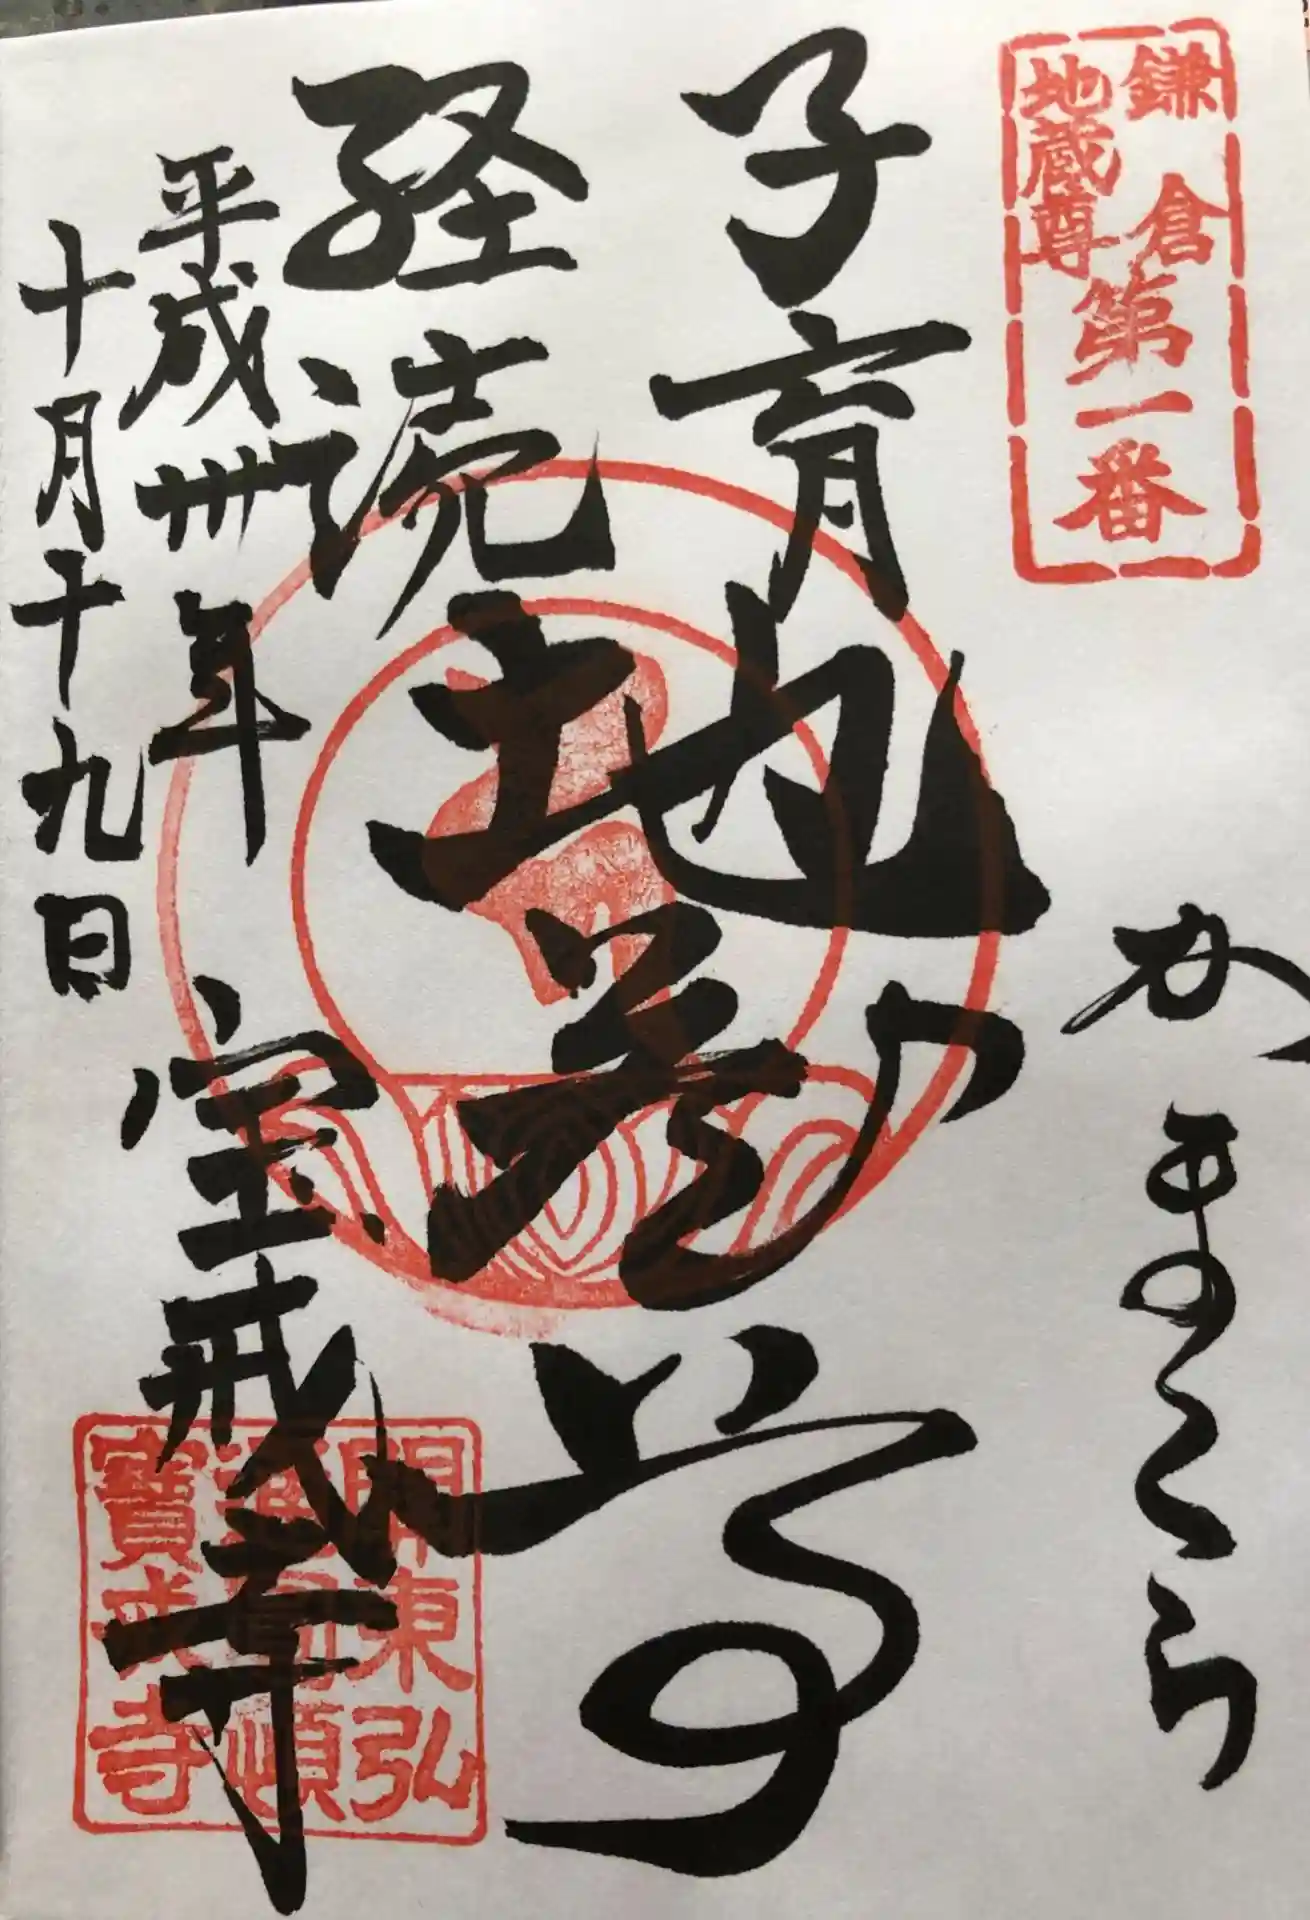 鎌倉
地蔵尊
第一番
かまくら
子育
経読
地蔵尊
平成卅年
十月十九日
宝戒寺
関東弘
頓
寶戒寺